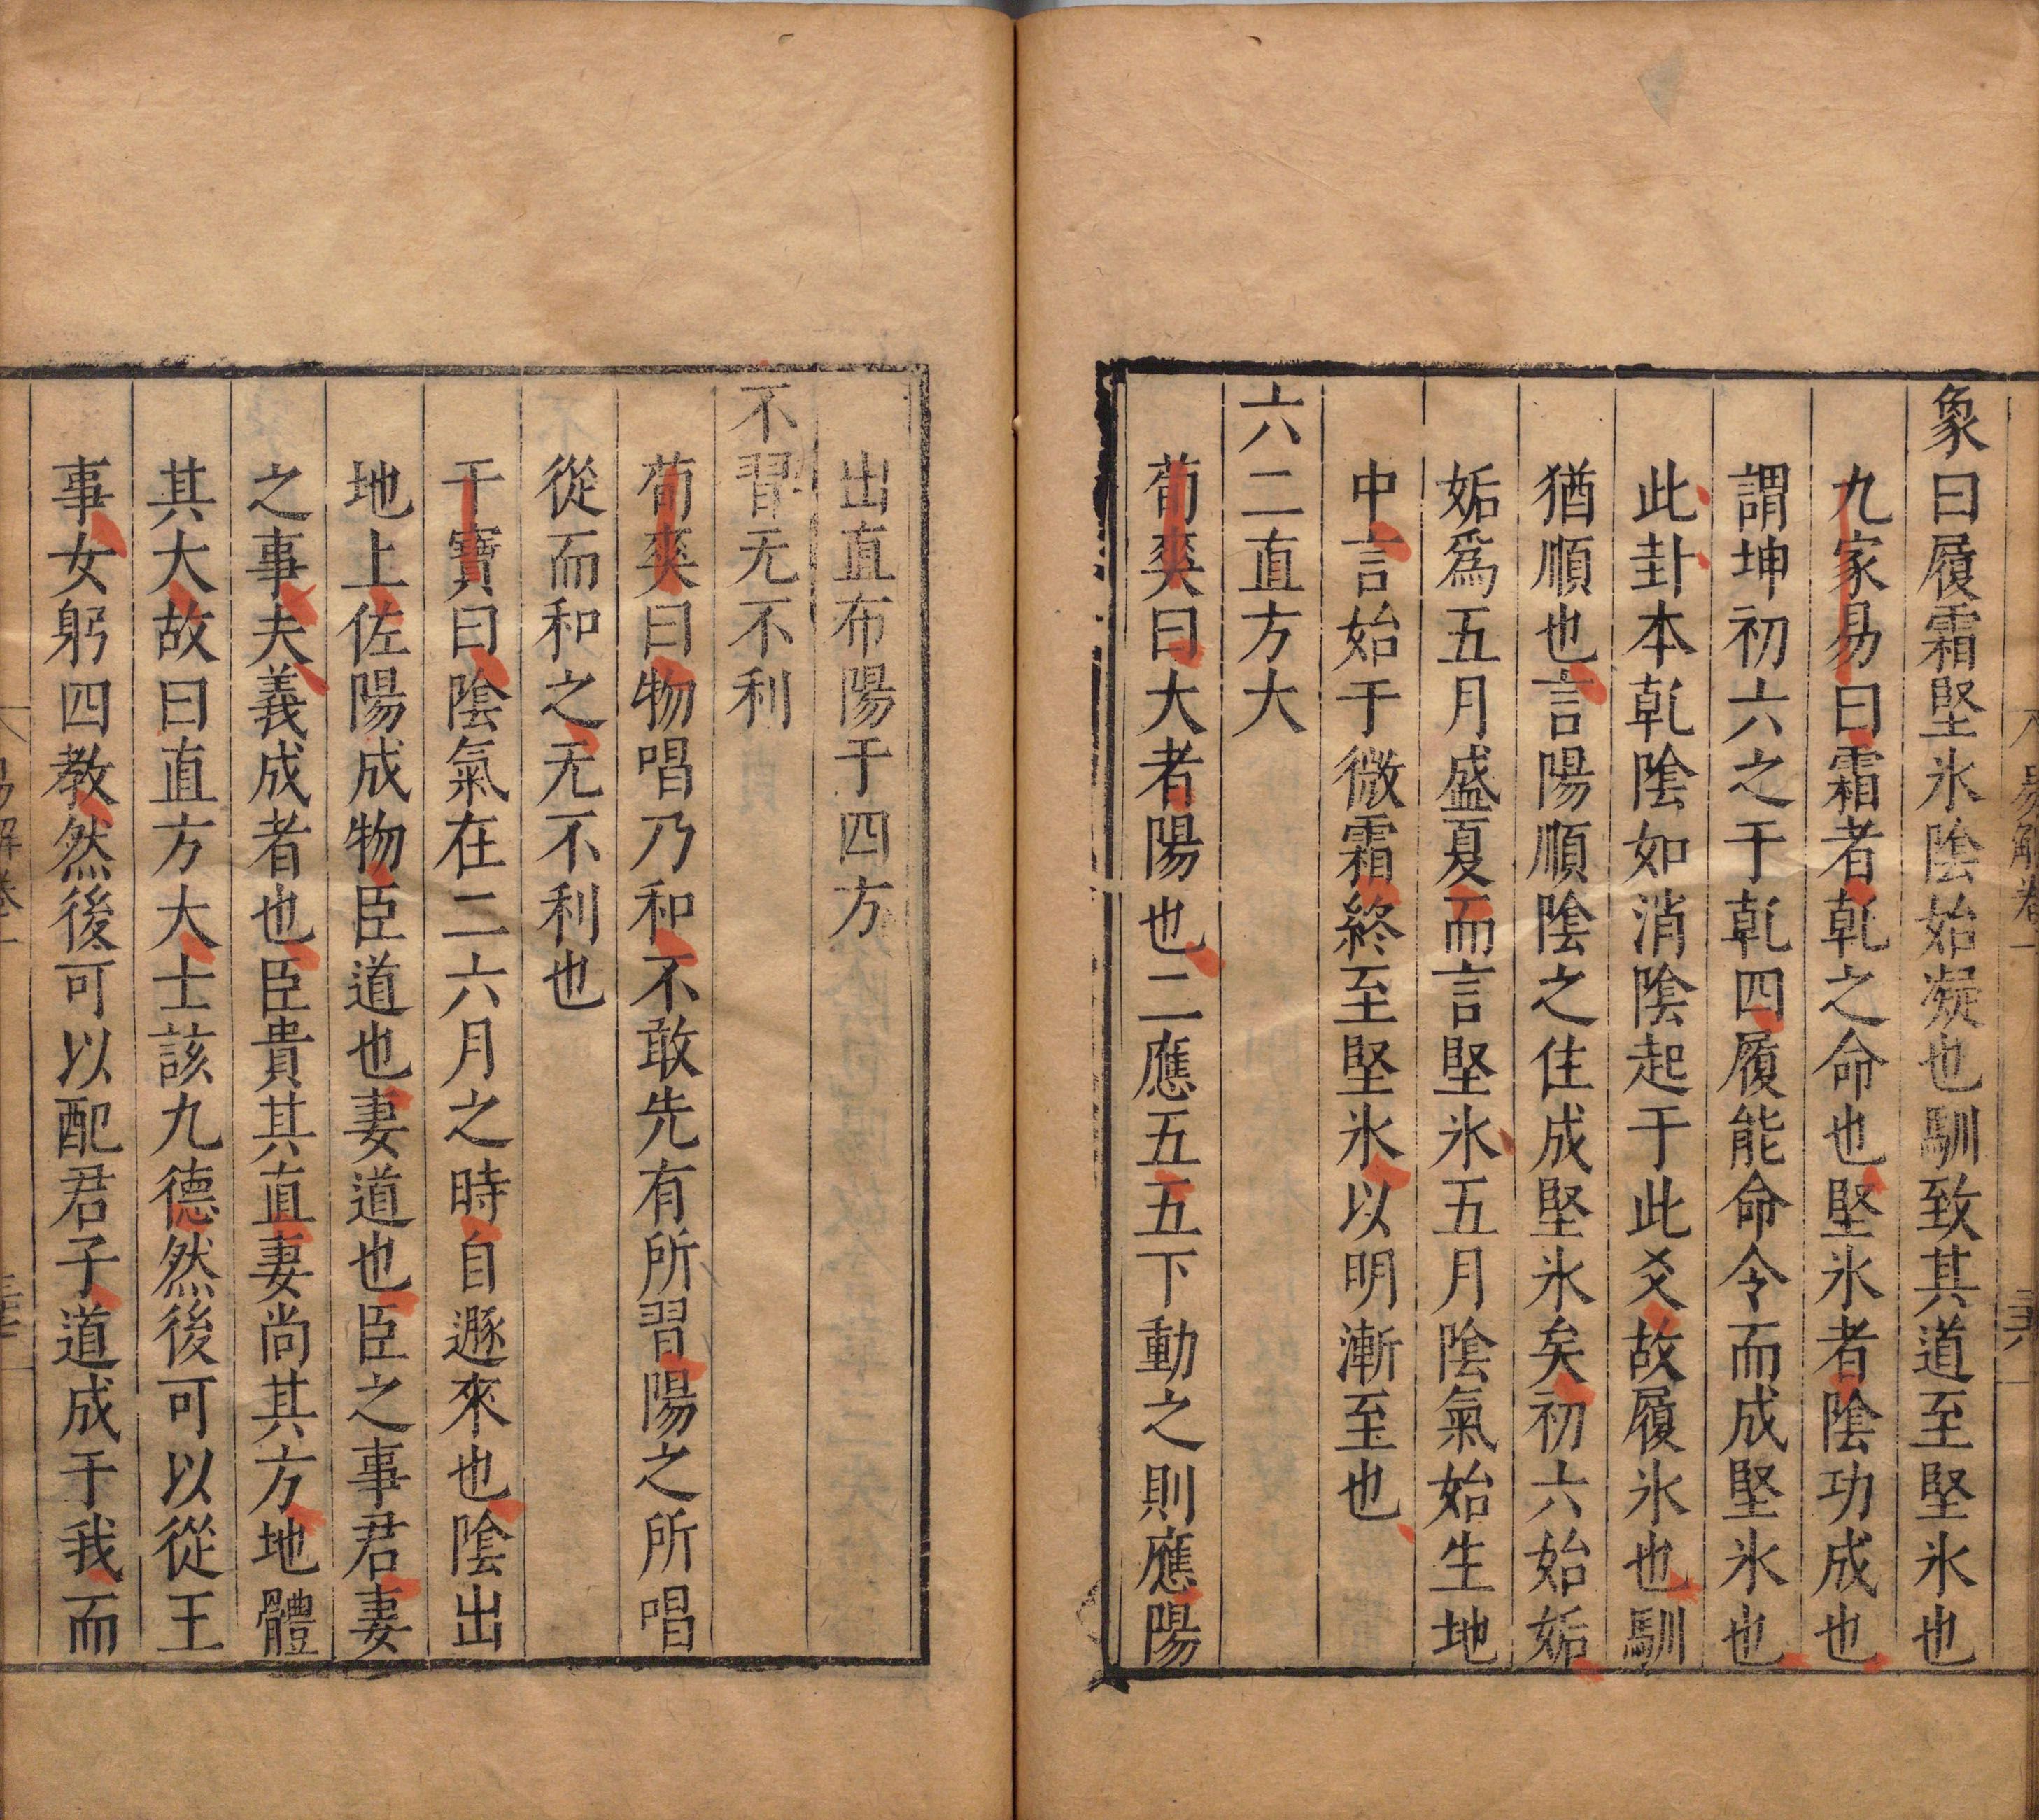 象曰履霜堅氷陰始凝也馴致其道至堅氷也
九家易曰霜者乾之命也堅氷者陰功成也
謂坤初六之于乾四履能命令而成堅氷也
此卦本乾陰如消陰起于此爻故履氷也馴
猶順也言陽順陰之住成堅氷矣初六始姤
姤爲五月盛夏而言堅氷五月陰氣始生地
中言始于微霜終至堅氷以明漸至也
六二直方大
荀爽曰大者陽也二應五五下動之則應陽
出直布陽于四方
不習无不利
荀爽曰物唱乃和不敢先有所習陽之所唱
從而和之无不利也
干寶曰陰氣在二六月之時自遯來也陰出
地上佐陽成物臣道也妻道也臣之事君妻
之事夫義成者也臣貴其直妻尚其方地體
其大故曰直方大士該九德然後可以從王
事女躬四教然後可以配君子道成于我而